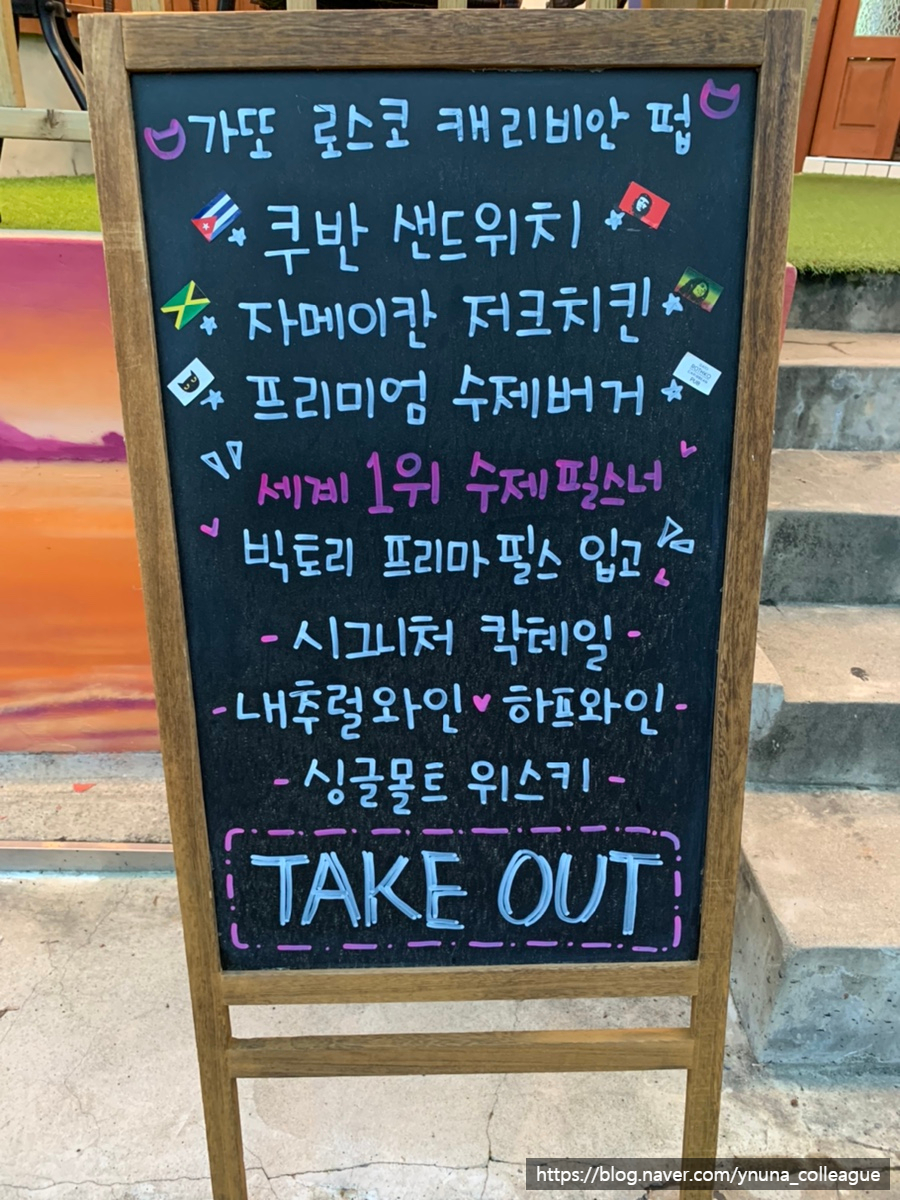 가또 로스코 캐리비안 펍
쿠반 샌드위치
자메이칸 저크치킨
프리미엄 수제버거
세계 1위 수제필스너
빅토리 프리마필스 입고
- 시그니처 칵테일 -
- 내추럴와인 ♥ 하프와인 -
- 싱글몰트 위스키 -
TAKE OUT
https://blog.naver.com/ynuna_colleague